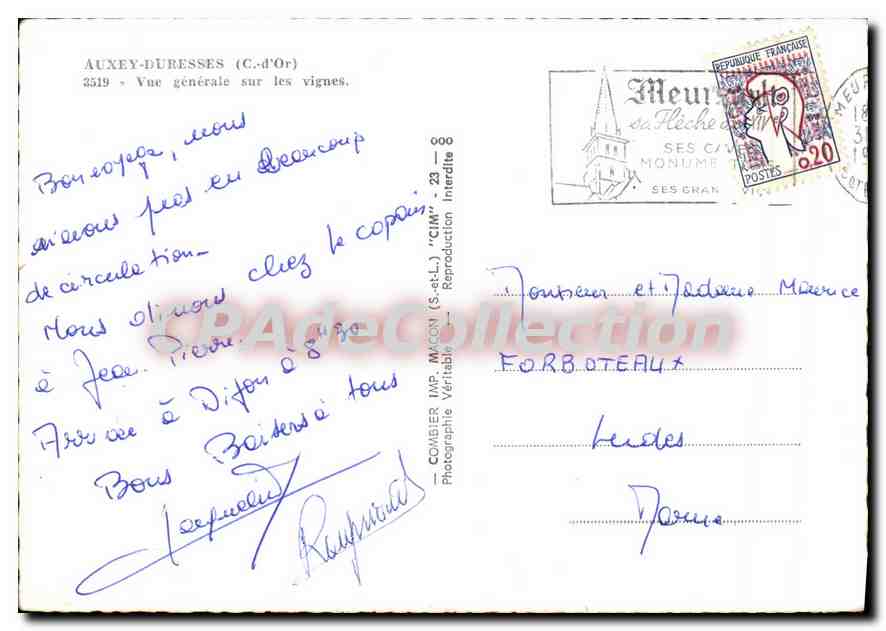 AUXEY-DURESSES (C.-d'Or)
3519 - Vue générale sur les vignes.
Bon voyage, nous
n'avons pas eu beaucoup
de circulation -
Nous dinons chez le copain
à Jean Pierre.
Arrivée à Dijon à 8h30
Bons Baisers à tous
Jacqueline
Raymond
— COMBIER IMP. MACON (S.-et-L.) "CIM" - 23 — 000
Photographie Véritable — Reproduction Interdite
Meurs
sa Flèche
SES CAV
MONUME TS
SES GRAN VI
REPUBLIQUE FRANÇAISE
0,20
POSTES
MEUR
18
31
Monsieur et Madame Maurice
FORBOTEAUX
Ludes
Marne
CPAdeCollection